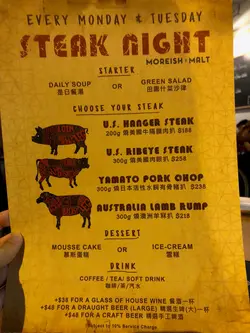 EVERY MONDAY & TUESDAY
STEAK NIGHT
MOREISH & MALT
STARTER
DAILY SOUP OR GREEN SALAD
是日餐湯 田園什菜沙律
CHOOSE YOUR STEAK
U.S. HANGER STEAK
200g 燒美國牛隔膜肉扒 $188
U.S. RIBEYE STEAK
300g 燒美國肉眼扒 $258
YAMATO PORK CHOP
300g 燒日本活性水豚有骨豬扒 $238
AUSTRALIA LAMB RUMP
300g 燒澳洲羊冧扒 $218
DESSERT
MOUSSE CAKE OR ICE-CREAM
慕斯蛋糕 雪糕
DRINK
COFFEE / TEA/ SOFT DRINK
咖啡/茶/汽水
+$38 FOR A GLASS OF HOUSE WINE 餐酒一杯
+$48 FOR A DRAUGHT BEER (LARGE) 精選生啤(大)一杯
+$48 FOR A CRAFT BEER 精選手工啤酒
Subject to 10% Service Charge